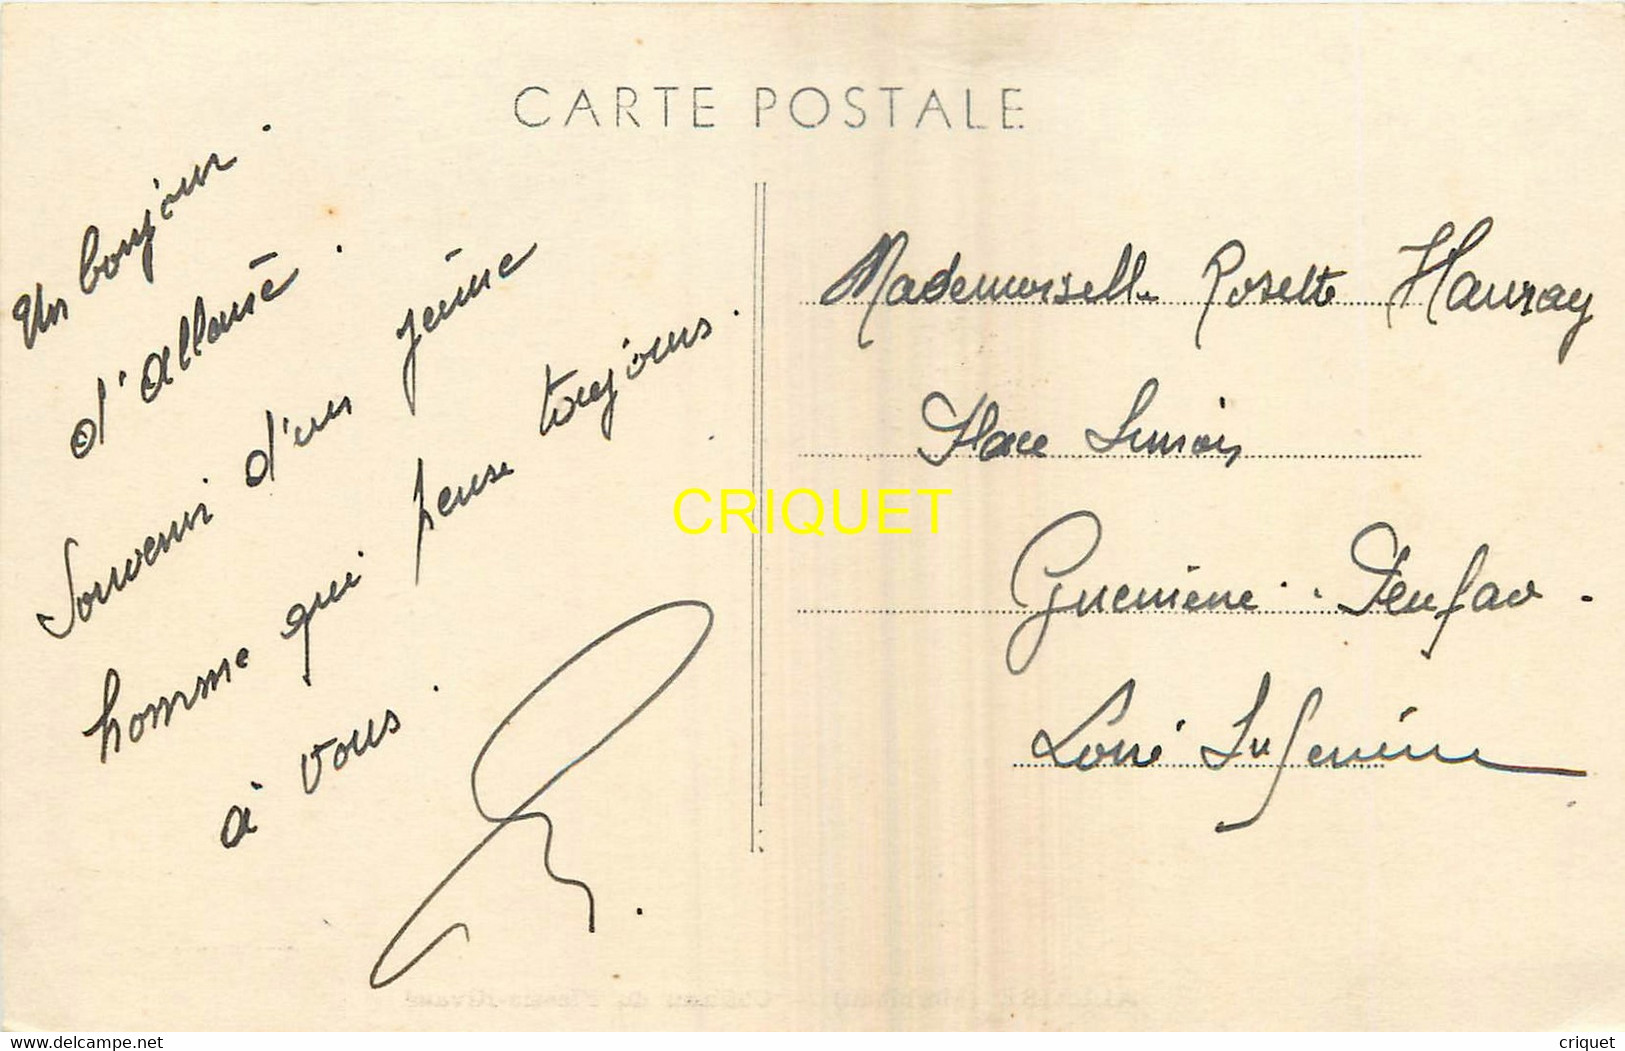 CARTE POSTALE
Un bonjour.
d'allairé.
Souvenir d'un jeune
homme qui pense toujours.
à vous.
Mademoiselle Rosette Hauray
Place Simon
Guemene. Penfao.
Loire Inferieure
CRIQUET
delcampe.net
criquet